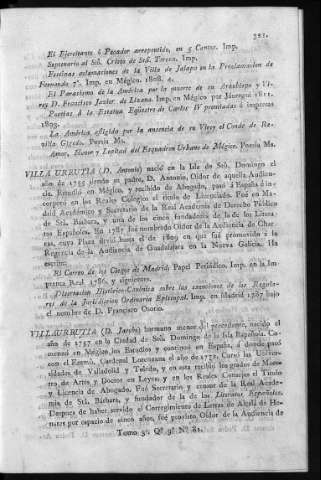 321.
El Ejercitante ó Pecador arrepentido, en 5 Cantos. Imp.
Septenario al Smô. Cristo de Stâ. Teresa. Imp.
Festivas aclamaciones de la Villa de Jalapa en la Proclamacion de
Fernando 7º. Imp. en Mégico. 1808. 4.
El Patriotismo de la América por la muerte de su Arzobispo y Vi-
rey D. Francisco Javier de Lizana. Imp. en Mégico por Jauregui. 1811.
Poesías á la Estatua Eqüestre de Carlos IV premiadas é impresas
1803.
La América afligida por la ausencia de su Virey el Conde de Re-
villa Gigedo. Poesía Ms.
Amor, Honor y Lealtad del Esquadron Urbano de Mégico. Poesía Ms.
VILLA URRUTIA (D. Antonio) nació en la Isla de Stô. Domingo el
año de 1755 siendo su padre, D. Antonio, Oidor de aquella Audien-
cia. Estudió en Mégico, y recibido de Abogado, pasó á España é in-
corporó en los Reales Colegios el título de Licenciado. Fué en Ma-
drid Académico y Secretario de la Real Academia de Derecho Público
de Stâ. Bárbara, y uno de los cinco fundadores de la de los Litera-
tos Españoles. En 1787 fué nombrado Oidor de la Audiencia de Char-
cas, cuya Plaza sirvió hasta el de 1809 en que fué promovido á la
Regencia de la Audiencia de Guadalajara en la Nueva Galicia. Ha
escrito:
El Correo de los Ciegos de Madrid: Papel Periódico. Imp. en la Im-
prenta Real. 1786. y siguientes.
Disertacion Histórico-Canónica sobre las exenciones de los Regula-
res de la Jurisdiccion Ordinaria Episcopal. Imp. en Madrid 1787 bajo
el nombre de D. Francisco Osorio.
VILLAURRUTIA (D. Jacobo) hermano menor del precedente, nacido el
año de 1757 en la Ciudad de Stô. Domingo de la Isla Española. Co-
menzó en Mégico los Estudios y continuó en España, á donde pasó
con el Exmô. Cardenal Lorenzana el año de 1772. Cursó las Univer-
sidades de Valladolid y Toledo, y en esta recibió los grados de Maes-
tro de Artes y Doctor en Leyes, y en los Reales Consejos el Título
y Licencia de Abogado. Fué Secretario y censor de la Real Acade-
mia de Stâ. Bárbara, y fundador de la de los Literatos Españoles.
Despues de haber servido el Corregimiento de Letras de Alcalá de He-
nares por espacio de cinco años, fué provisto Oidor de la Audiencia de
Tomo 3º. Qº. 9º. Nº. 81.